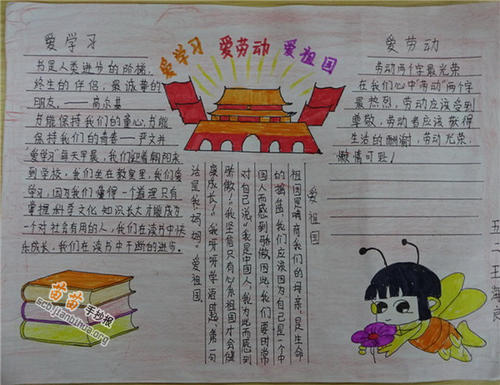 爱学习 爱劳动 爱祖国
爱学习
书是人类进步的阶梯,
终生的伴侣,最诚挚的
朋友。——高尔基
书能保持我们的童心,书能
保持我们的青春——严文井
爱学习每天早晨,我们迎着朝阳来
到学校,我们坐在教室里,我们爱
学习,因为我们懂得一个道理只有
掌握科学文化知识长大才能成为
一个对社会有用的人,我们在读书中快
乐成长,我们在读书中不断的进步。
爱祖国
祖国是哺育我们的母亲,是生命
的摇篮,我们应该因为自己是一个中
国人而感到骄傲,因此,我们要时常
对自己说:"我是中国人,我为此而感到
骄傲!"我坚信只有心系祖国才会健
康成长!我呀呀学语起,第一句
话是我妈妈,爱祖国
爱劳动
劳动两个字最光荣
在我们心中"劳动"两个字
最热烈,劳动应该受到
尊敬,劳动者应该获得
生活的酬谢,劳动光荣,
懒惰可耻!
苗苗手抄报
scb.jianbihua.org